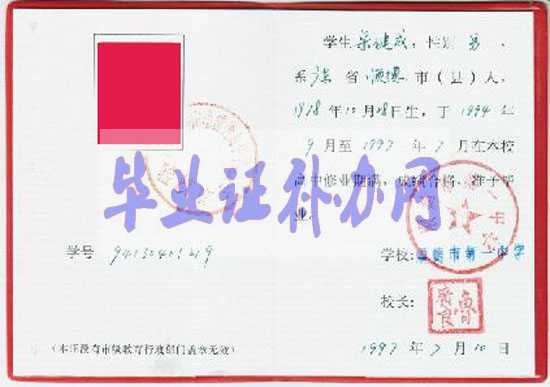 学生梁健成，性别男、
系广东省顺德市(县)人，
1978年10月28日生，于1994年
9月至1997年7月在本校
高中修业期满，成绩合格，准予毕
业。
毕业证补办网
学号 94130401219
学校:顺德市第一中学
校长:
(本证没有市级教育行政部门盖章无效)
1997年7月10日